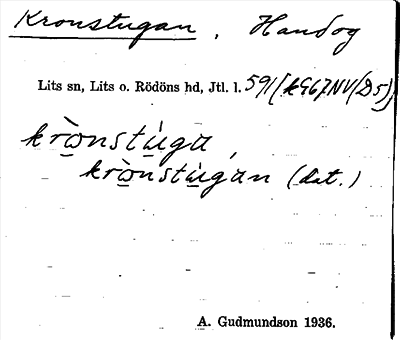 Kronstugan, Handog
Lits sn, Lits o. Rödöns hd, Jtl. l. 591[k967NV/D5]
krò̲nstù̲ga,
krò̲nstù̲gan (dat.)
A. Gudmundson 1936.